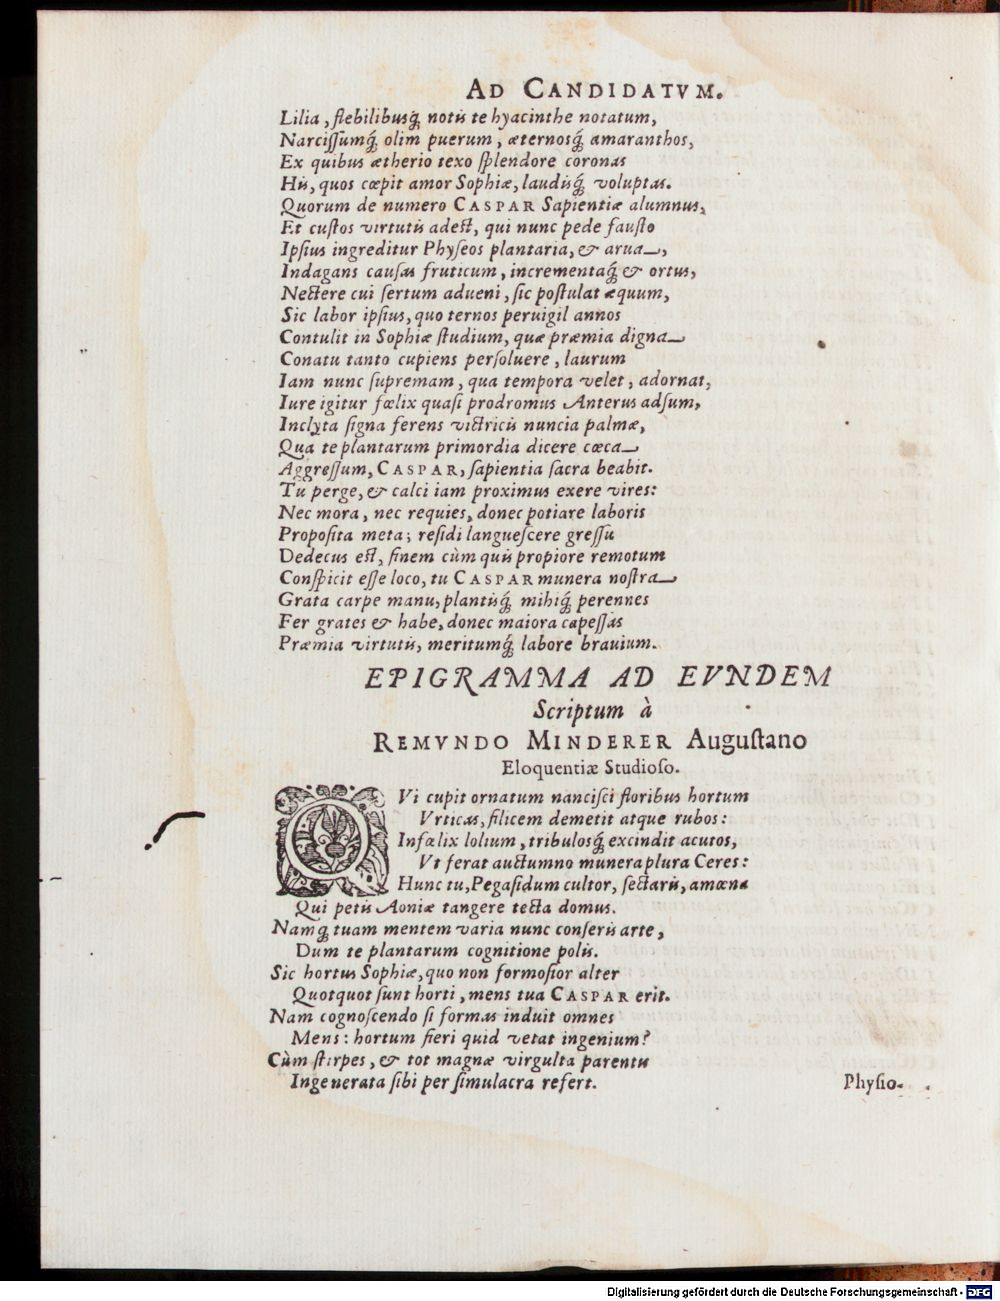 AD CANDIDATVM.
Lilia, flebilibusq́; notis te hyacinthe notatum,
Narciſſumq́; olim puerum, æternosq́; amaranthos,
Ex quibus ætherio texo ſplendore coronas
His, quos cœpit amor Sophiæ, laudisq́; voluptas.
Quorum de numero CASPAR Sapientiæ alumnus,
Et cuſtos virtutis adeſt, qui nunc pede fauſto
Ipſius ingreditur Phyſeos plantaria, & arua,
Indagans cauſas fruticum, incrementaq́; & ortus,
Nectere cui ſertum adueni, ſic poſtulat æquum,
Sic labor ipſius, quo ternos peruigil annos
Contulit in Sophiæ ſtudium, quæ præmia digna
Conatu tanto cupiens perſoluere, laurum
Iam nunc ſupremam, qua tempora velet, adornat,
Iure igitur fœlix quaſi prodromus Anterus adſum,
Inclyta ſigna ferens victricis nuncia palmæ,
Qua te plantarum primordia dicere cœca
Aggreſſum, CASPAR, ſapientia ſacra beabit.
Tu perge, & calci iam proximus exere vires:
Nec mora, nec requies, donec potiare laboris
Propoſita meta; reſidi langueſcere greſſu
Dedecus eſt, finem cùm quis propiore remotum
Conſpicit eſſe loco, tu CASPAR munera noſtra
Grata carpe manu, plantisq́; mihiq́; perennes
Fer grates & habe, donec maiora capeſſas
Præmia virtutis, meritumq́; labore brauium.
EPIGRAMMA AD EVNDEM
Scriptum à
REMVNDO MINDERER Auguſtano
Eloquentiæ Studioſo.
QVi cupit ornatum nanciſci floribus hortum
Vrticas, filicem demetit atque rubos:
Infœlix lolium, tribulosq́; excindit acutos,
Vt ferat auctumno munera plura Ceres:
Hunc tu, Pegaſidum cultor, ſectaris, amœna
Qui petis Aoniæ tangere tecta domus.
Namq́; tuam mentem varia nunc conſeris arte,
Dum te plantarum cognitione polis.
Sic hortus Sophiæ, quo non formoſior alter
Quotquot ſunt horti, mens tua CASPAR erit.
Nam cognoſcendo ſi formas induit omnes
Mens: hortum fieri quid vetat ingenium?
Cùm ſtirpes, & tot magnæ virgulta parentis
Ingenerata ſibi per ſimulacra refert.
Phyſio-
Digitalisierung gefördert durch die Deutsche Forschungsgemeinschaft - DFG